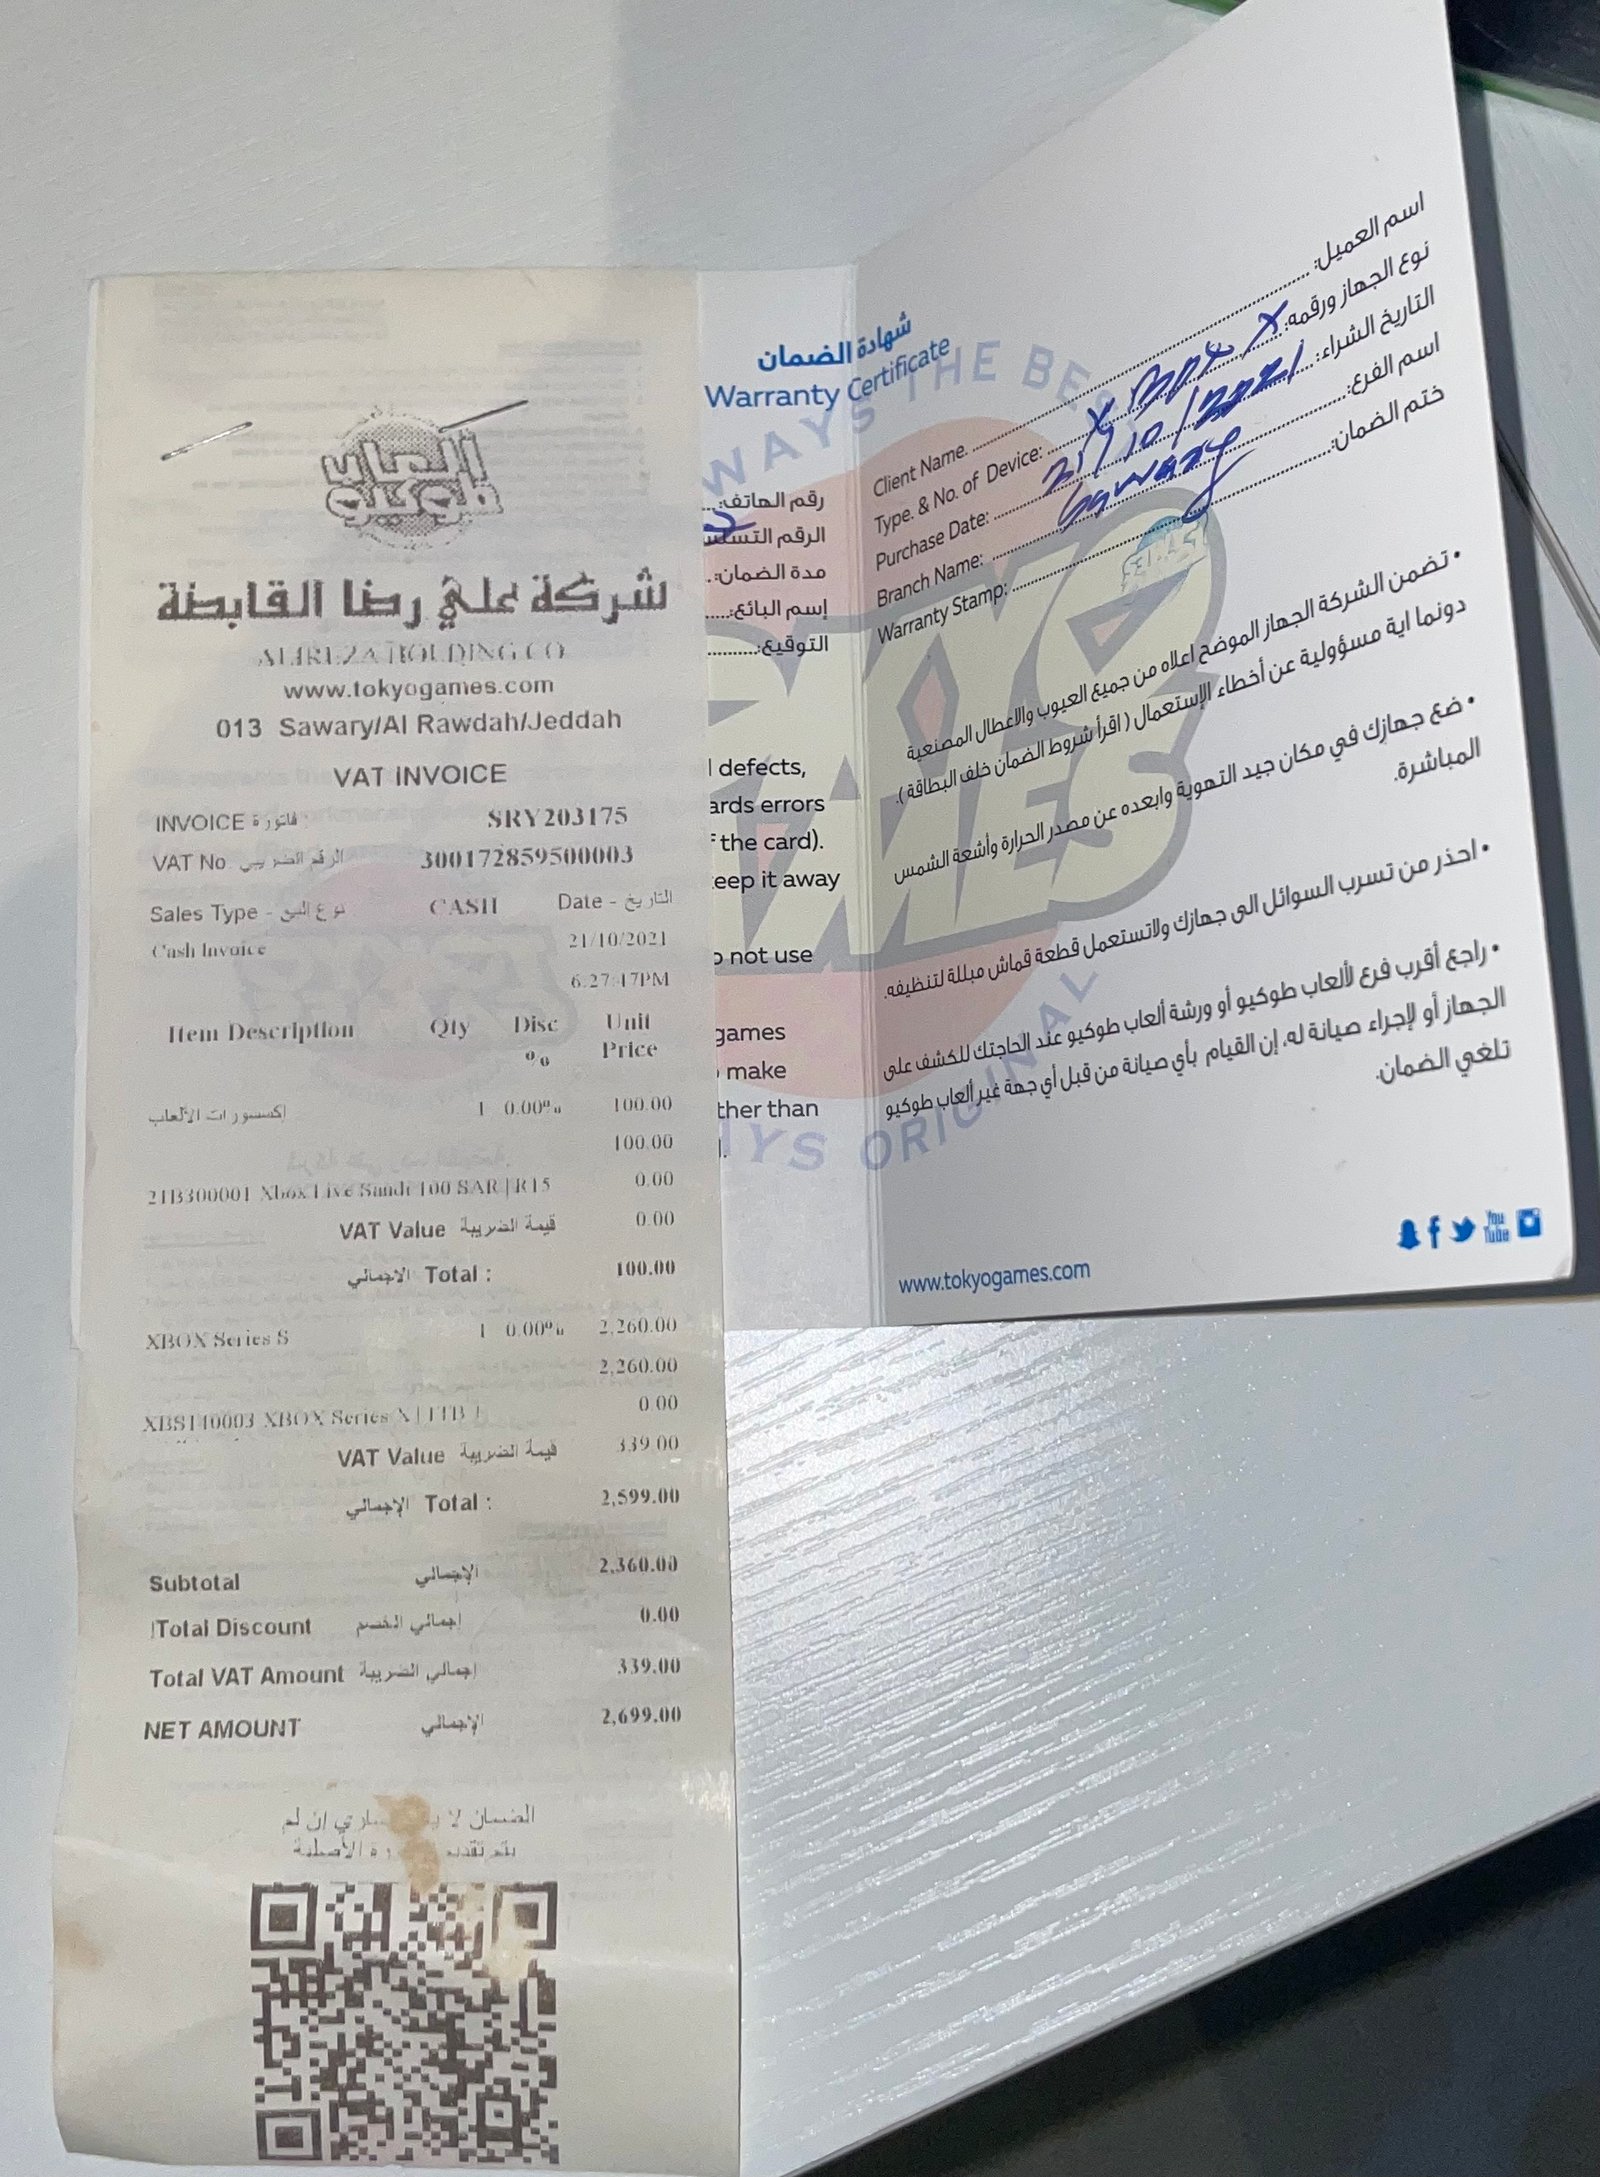 ألعاب
طوكيو
شركة علي رضا القابضة
ALIREZA HOLDING CO
www.tokyogames.com
013 Sawary/Al Rawdah/Jeddah
VAT INVOICE
INVOICE فاتورة : SRY203175
VAT No الرقم الضريبي 300172859500003
Sales Type - نوع البيع CASH Date - التاريخ
Cash Invoice 21/10/2021
6:27:47PM
Item Description Qty Disc % Unit Price
إكسسورات الألعاب 1 0.00% 100.00
100.00
21B300001 Xbox Live Saudi 100 SAR | R15 0.00
VAT Value قيمة الضريبة 0.00
الاجمالي Total : 100.00
XBOX Series S 1 0.00% 2,260.00
2,260.00
XBS140003 XBOX Series X | 1TB | 0.00
VAT Value قيمة الضريبة 339.00
الإجمالي Total : 2,599.00
Subtotal الإجمالي 2,360.00
Total Discount إجمالي الخصم 0.00
Total VAT Amount إجمالي الضريبة 339.00
NET AMOUNT الإجمالي 2,699.00
الضمان لا ساري إن لم
يتم تقديم الأصلية
شهادة الضمان
Warranty Certificate
رقم الهاتف:
مدة الضمان:
إسم البائع:
التوقيع:
defects,
ards errors
the card).
eep it away
not use
games
make
ther than
Client Name. اسم العميل:
Type. & No. of Device: X Box X نوع الجهاز ورقمه:
Purchase Date: 21/10/2021 التاريخ الشراء:
Branch Name: Sawary اسم الفرع:
Warranty Stamp: ختم الضمان:
• تضمن الشركة الجهاز الموضح اعلاه من جميع العيوب والاعطال المصنعية
دونما اية مسؤولية عن أخطاء الإستعمال ( اقرأ شروط الضمان خلف البطاقة ).
• ضع جهازك في مكان جيد التهوية وابعده عن مصدر الحرارة وأشعة الشمس
المباشرة.
• احذر من تسرب السوائل الى جهازك ولاتستعمل قطعة قماش مبللة لتنظيفه.
• راجع أقرب فرع لألعاب طوكيو أو ورشة ألعاب طوكيو عند الحاجتك للكشف على
الجهاز أو لإجراء صيانة له، إن القيام بأي صيانة من قبل أي جهة غير ألعاب طوكيو
تلغي الضمان.
www.tokyogames.com
You Tube
WAYS THE BEST
AYS ORIGINAL